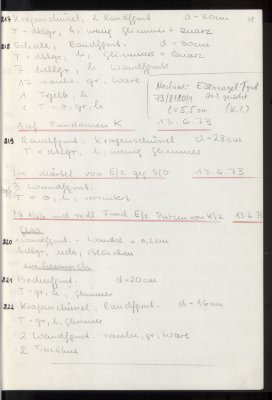 817 Kragenschüssel, 2 Randfgmt. d = 30cm
T = dklgr, h, wenig Glimmer + Quarz
818 Schale, Randfgmt. d = 30cm
T = dklgr, h, Glimmer + Quarz
7 hellgr, h Wandfgmte
17 rauhe, gr, Ware
1 Tgelb, h
1 T = o, gr, h
Nachtrag: Eisennagel Fgmt
73/818019
L = 5,5 cm (K.1.)
Auf Fundament K 13.6.73
819 Randfgmt. Kragenschüssel d = 28cm
T = dklgr, h, wenig Glimmer
Im Mörtel von E/2 geg S/O 13.6.73
3 Wandfgmt.
T = o, h, verziert
Fund. E/2 K/2 13.6.73
Glas
820 Wandfgmt. - Wandst = 0,2cm
hellgr, Bläschen
821 Bodenfgmt. d = 20cm
T = gr, h, Glimmer
822 Kragenschüssel, Randfgmt. d = 16cm
T = gr, h, Glimmer
2 Wandfgmt. rauhe, gr, Ware
2 Tierzähne